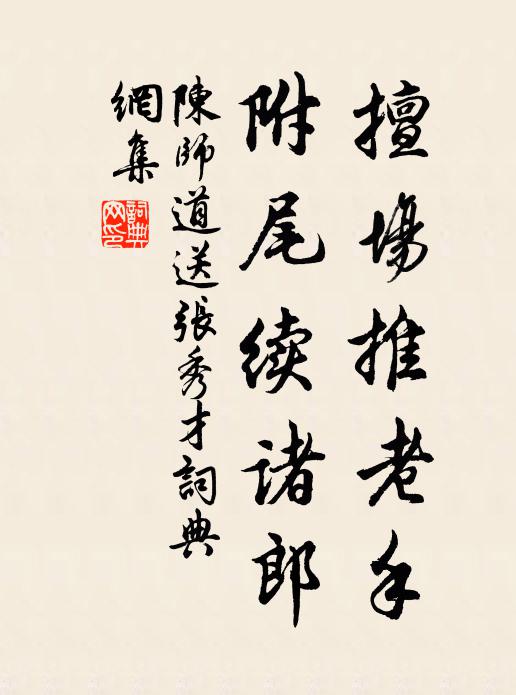 擅場推老手
附尾续诸郎
陳師道送張秀才詞典
網集
詞典网印